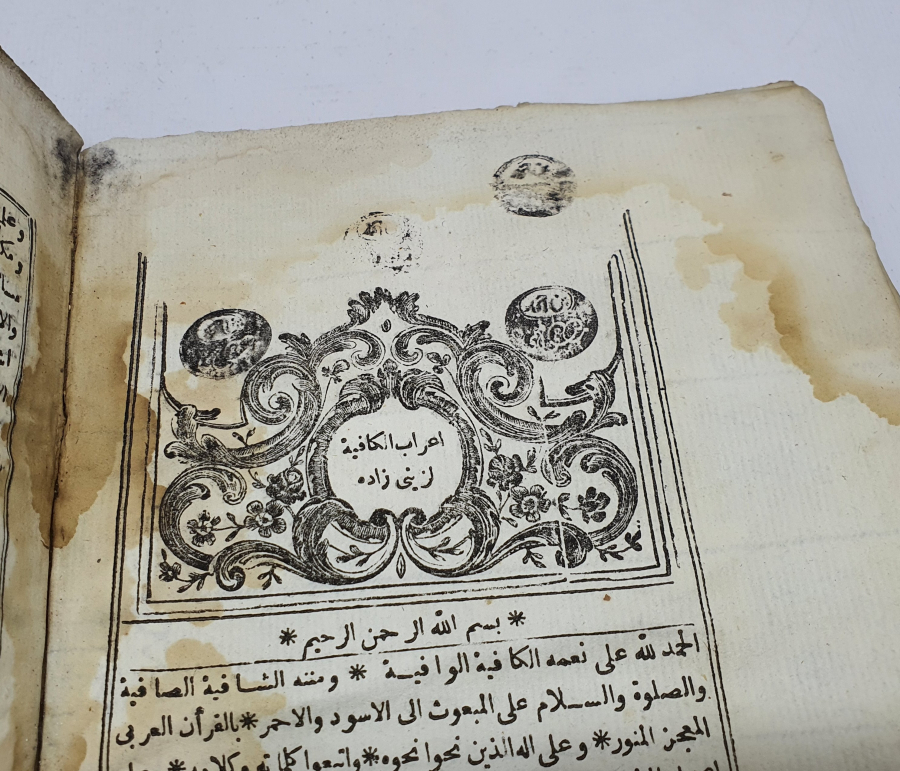 اعراب الكافية
لزينى زاده
* بسم الله الرحمن الرحيم *
الحمد لله على نعمه الكافية الوافيـة * ومننه الشـافية الصافية
والصلوة والسـلام على المبعوث الى الاسود والاحمر * بالقرأن العربى
المعجز المنور * وعلى اله الذين نحوا نحوه * واتبعوا كلماته وكلامه *